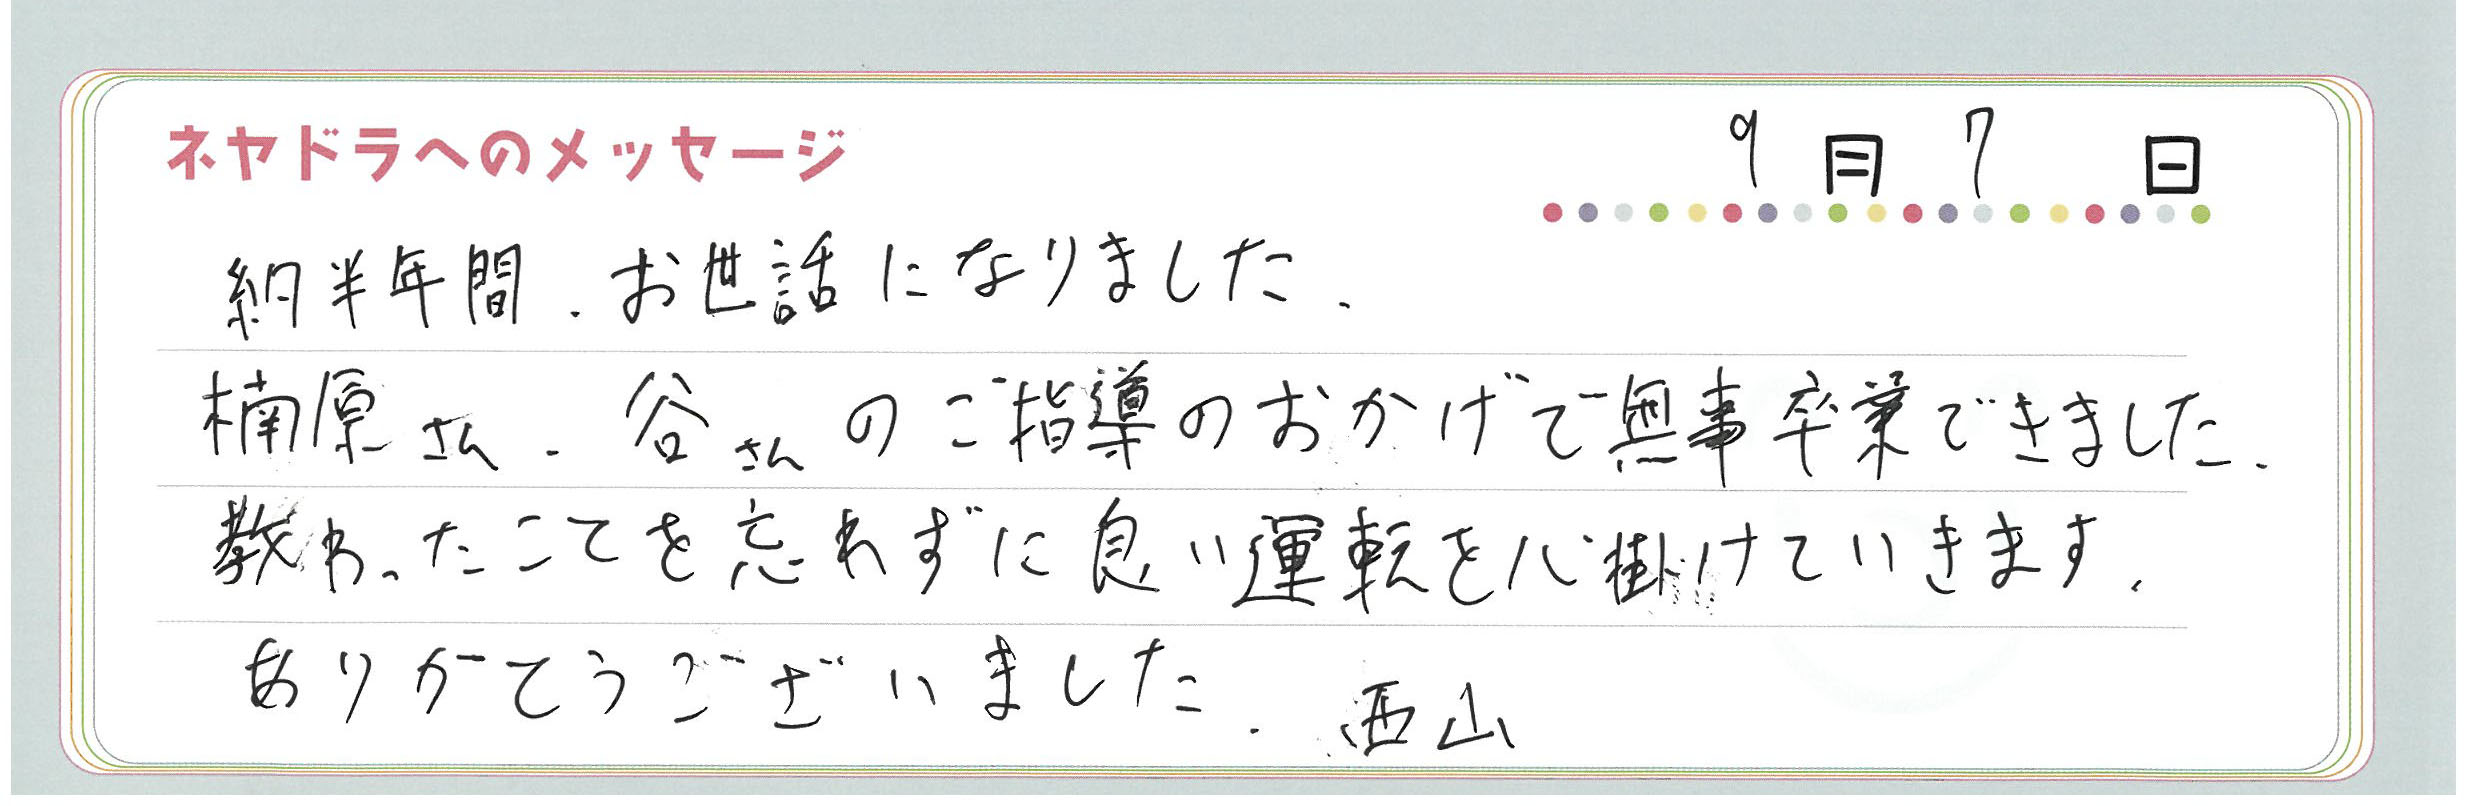 ネヤドラへのメッセージ
9月7日
約半年間、お世話になりました。
楠原さん、谷さんのご指導のおかげで無事卒業できました。
教わったことを忘れずに良い運転を心掛けていきます。
ありがとうございました。 西山